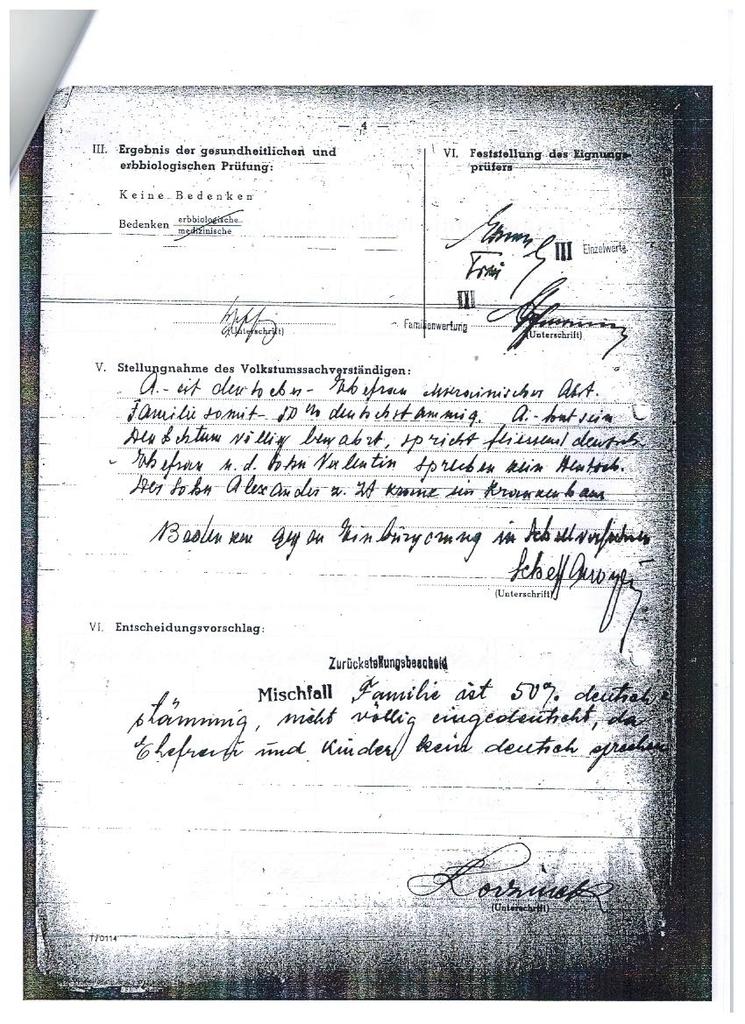 — 4 —
III. Ergebnis der gesundheitlichen und
erbbiologischen Prüfung:
Keine Bedenken
Bedenken erbbiologische
medizinische
(Unterschrift)
VI. Feststellung des Eignungs-
prüfers
III Einzelwertg.
Frau
III
Familienwertung
(Unterschrift)
V. Stellungnahme des Volkstumssachverständigen:
A. ist deutscher - Ehefrau ukrainischer Abst.
Familie somit 50% deutschstämmig. A. hat sein
Deutschtum völlig bewahrt, spricht fliessend deutsch
Ehefrau u. d. Sohn Valentin sprechen kein Deutsch.
Der Sohn Alexander z. Zt. im Krankenhaus
Bedenken gegen Einbürgerung im
(Unterschrift)
VI. Entscheidungsvorschlag:
Zurückstellungsbescheid
Mischfall Familie ist 50% deutsch-
stämmig, nicht völlig eingedeutscht, da
Ehefrau und Kinder kein deutsch sprechen
(Unterschrift)
T/0114